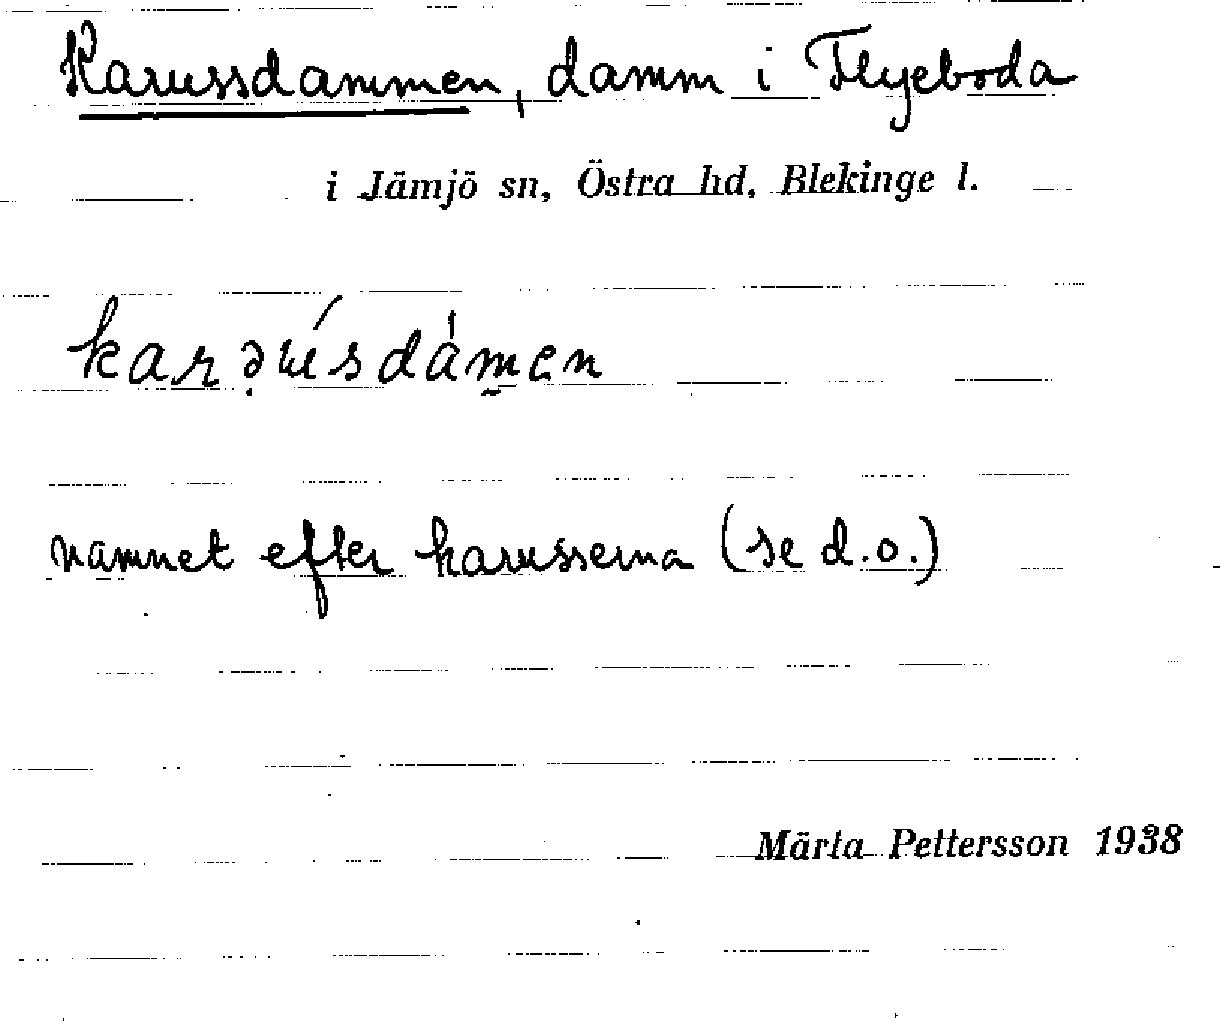 Karussdammen, damm i Flyeboda
i Jämjö sn, Östra hd, Blekinge l.
namnet efter karusserna (se d.o.)
Märta Pettersson 1938